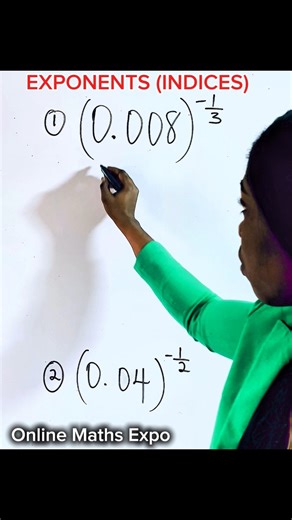 EXPONENTS (INDICES)
① (0.008)^-1/3
② (0.04)^-1/2
Online Maths Expo